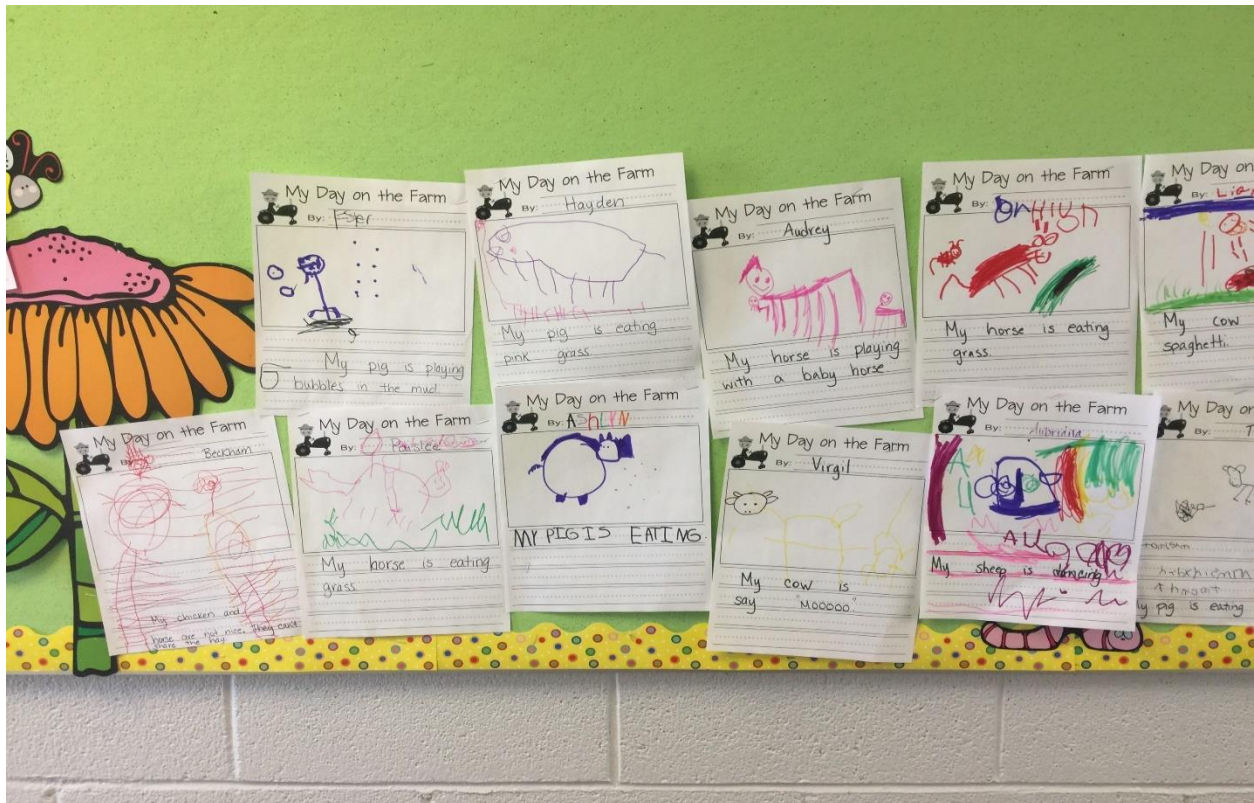 My Day on the Farm
By:
My pig is playing
bubbles in the mud
My Day on the Farm
By: Hayden
My pig is eating
pink grass.
My Day on the Farm
By: Audrey
My horse is playing
with a baby horse
My Day on the Farm
By:
My horse is eating
grass.
My Day on
By:
My cow
spaghetti.
My Day on the Farm
By: Beckham
My chicken and
horse are not nice. They
share the hay
My Day on the Farm
By:
My horse is eating
grass
My Day on the Farm
By: ASHLYN
MY PIG IS EATING.
My Day on the Farm
By: Virgil
My cow is
say "MOOOOO"
My Day on the Farm
By: Aubriana
My sheep is dancing
My Day on
By: T
pig is eating